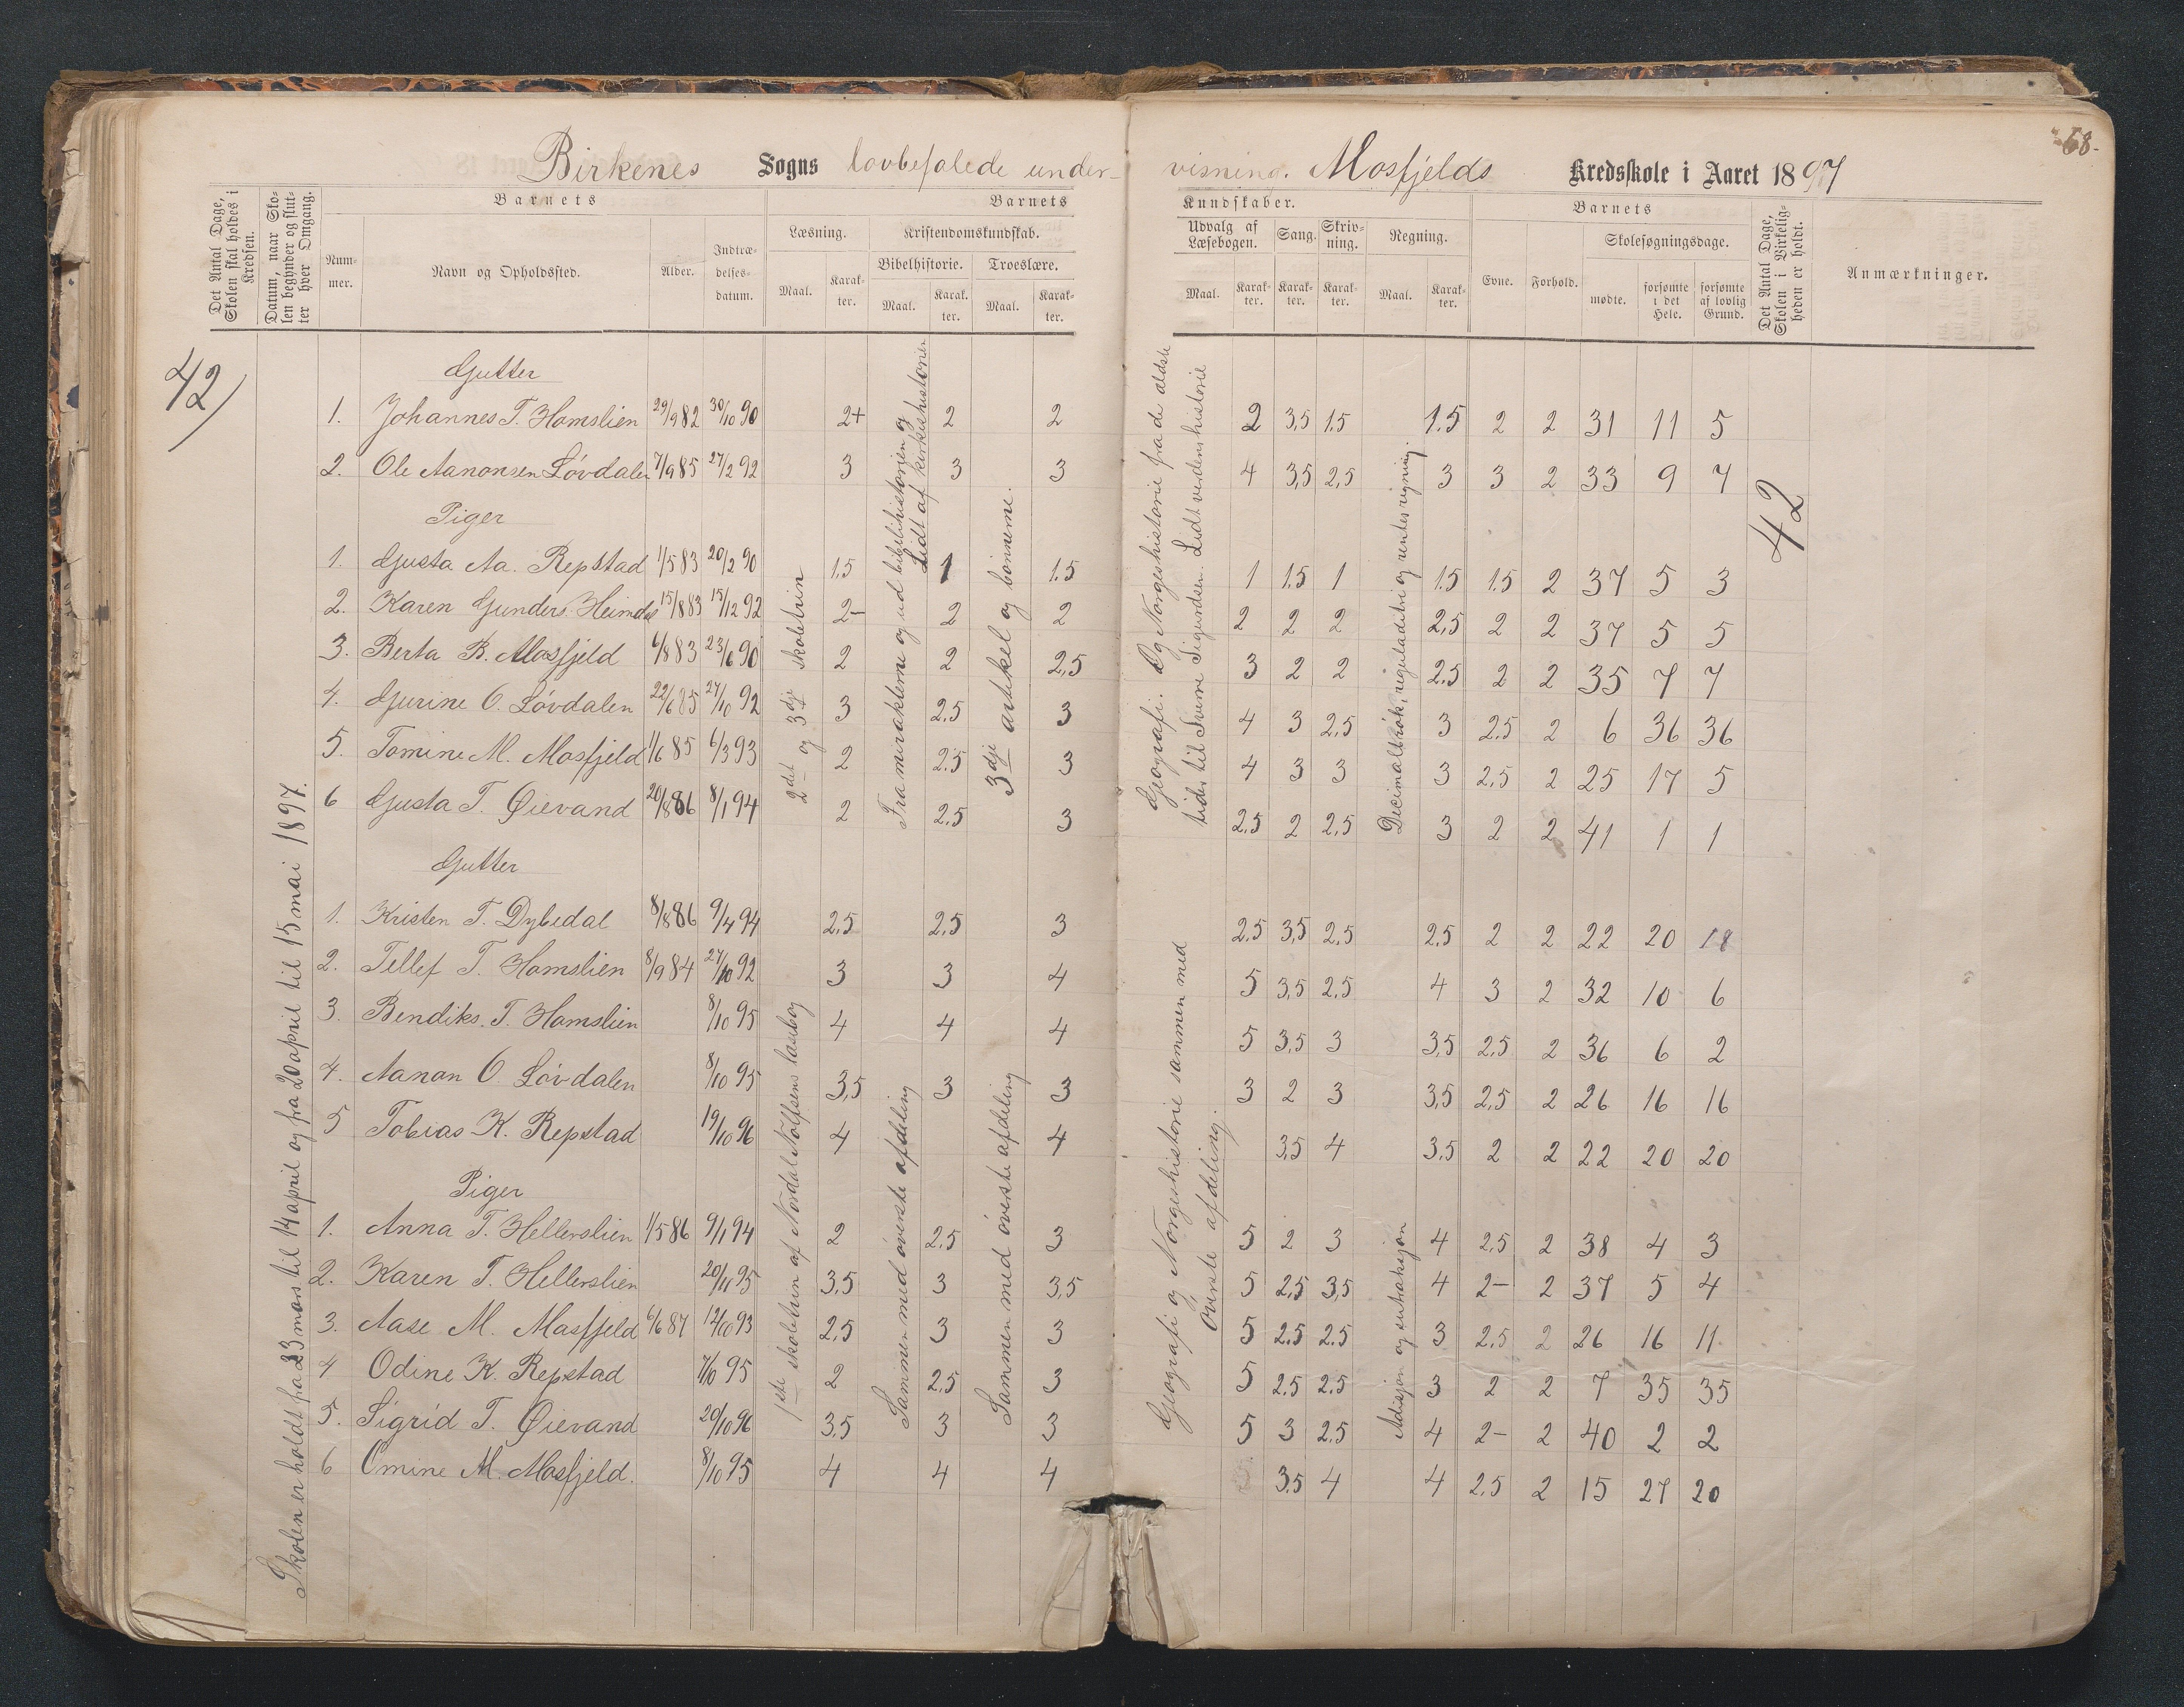 68.
Birkenes Sogns lovbefalede under- visning. Mosfjelds Kredsskole i Aaret 1897
Det Antal Dage, Skolen skal holdes i Kredsen.
Datum, naar Skolen begynder og slutter hver Omgang.
Barnets
Nummer.
Navn og Opholdssted.
Alder.
Indtrædelsesdatum.
Barnets Kundskaber.
Læsning.
Maal.
Karakter.
Kristendomskundskab.
Bibelhistorie.
Maal.
Karakter.
Troeslære.
Maal.
Karakter.
Udvalg af Læsebogen.
Maal.
Karakter.
Sang.
Karakter.
Skrivning.
Karakter.
Regning.
Maal.
Karakter.
Barnets
Evne.
Forhold.
Skolesøgningsdage.
mødte.
forsømte i det Hele.
forsømte af lovlig Grund.
Det Antal Dage, Skolen i Virkeligheden er holdt.
Anmærkninger.
42
Skolen er holdt fra 23 mars til 14 april og fra 20 april til 15 mai 1897.
2det og 3dje skoletrin
Fra miraklerne og ud bibelhistorien og
Lidt af kirkehistorien
3dje artikkel og bønnerne.
Geografi. Og Norgeshistorie fra de ældste
tider til Sverre Sigurdsen. Lidt verdenshistorie
Decimalbrøk, reguladetri og rentesregning.
42
Gutter
1. Johannes T. Homslien 29/9 82 30/10 90 2+ 2 2 2 3,5 1.5 1.5 2 2 31 11 5
2. Ole Aanonsen Løvdalen 7/9 85 27/2 92 3 3 3 4 3,5 2,5 3 3 2 33 9 7
Piger
1. Gusta Aa. Repstad 1/5 83 20/2 90 1.5 1 1.5 1 1.5 1 1.5 1.5 2 37 5 3
2. Karen Gunders. Heimdal 15/8 83 15/12 92 2- 2 2 2 2 2 2,5 2 2 37 5 5
3. Berta B. Mosfjeld 6/8 83 23/6 90 2 2 2,5 3 2 2 2.5 2 2 35 7 7
4. Gurine O. Løvdalen 22/6 85 27/10 92 3 2.5 3 4 3 2,5 3 2.5 2 6 36 36
5. Tomine M. Mosfjeld 1/6 85 6/3 93 2 2.5 3 4 3 3 3 2,5 2 25 17 5
6 Gusta T. Øievand 20/8 86 8/1 94 2 2.5 3 2,5 2 2,5 3 2 2 41 1 1
1ste skoletrin af Nordal Rolfsens læsebog
Sammen med øverste afdeling
Sammen med øverste afdeling
Geografi og Norgeshistorie sammen med
øverste afdeling.
Adisjon og subtraksjon
Gutter
1. Kristen T. Dybedal 8/8 86 9/4 94 2,5 2,5 3 2,5 3,5 2,5 2,5 2 2 22 20 18
2. Tellef T. Homslien 8/9 84 27/10 92 3 3 4 5 3,5 2,5 4 3 2 32 10 6
3. Bendiks. T. Homslien 8/10 95 4 4 4 5 3,5 3 3,5 2,5 2 36 6 2
4. Aanon O. Løvdalen 8/10 95 3,5 3 3 3 2 3 3,5 2,5 2 26 16 16
5 Tobias K. Repstad 19/10 96 4 4 3.5 4 3.5 2 2 22 20 20
Piger
1. Anna T. Hellerslien 1/5 86 9/1 94 2 2,5 3 5 2 3 4 2,5 2 38 4 3
2. Karen T. Hellerslien 20/11 95 3,5 3 3,5 5 2,5 3,5 4 2- 2 37 5 4
3. Aase M. Mosfjeld 6/6 87 12/10 93 2,5 3 3 5 2.5 2.5 3 2,5 2 26 16 11
4 Odine K. Repstad 7/10 95 2 2,5 3 5 2.5 2.5 3 2 2 7 35 35
5. Sigrid T. Øievand 20/10 96 3,5 3 3 5 3 2.5 4 2- 2 40 2 2
6 Omine M. Mosfjeld. 8/10 95 4 4 4 3.5 4 4 2,5 2 15 27 20